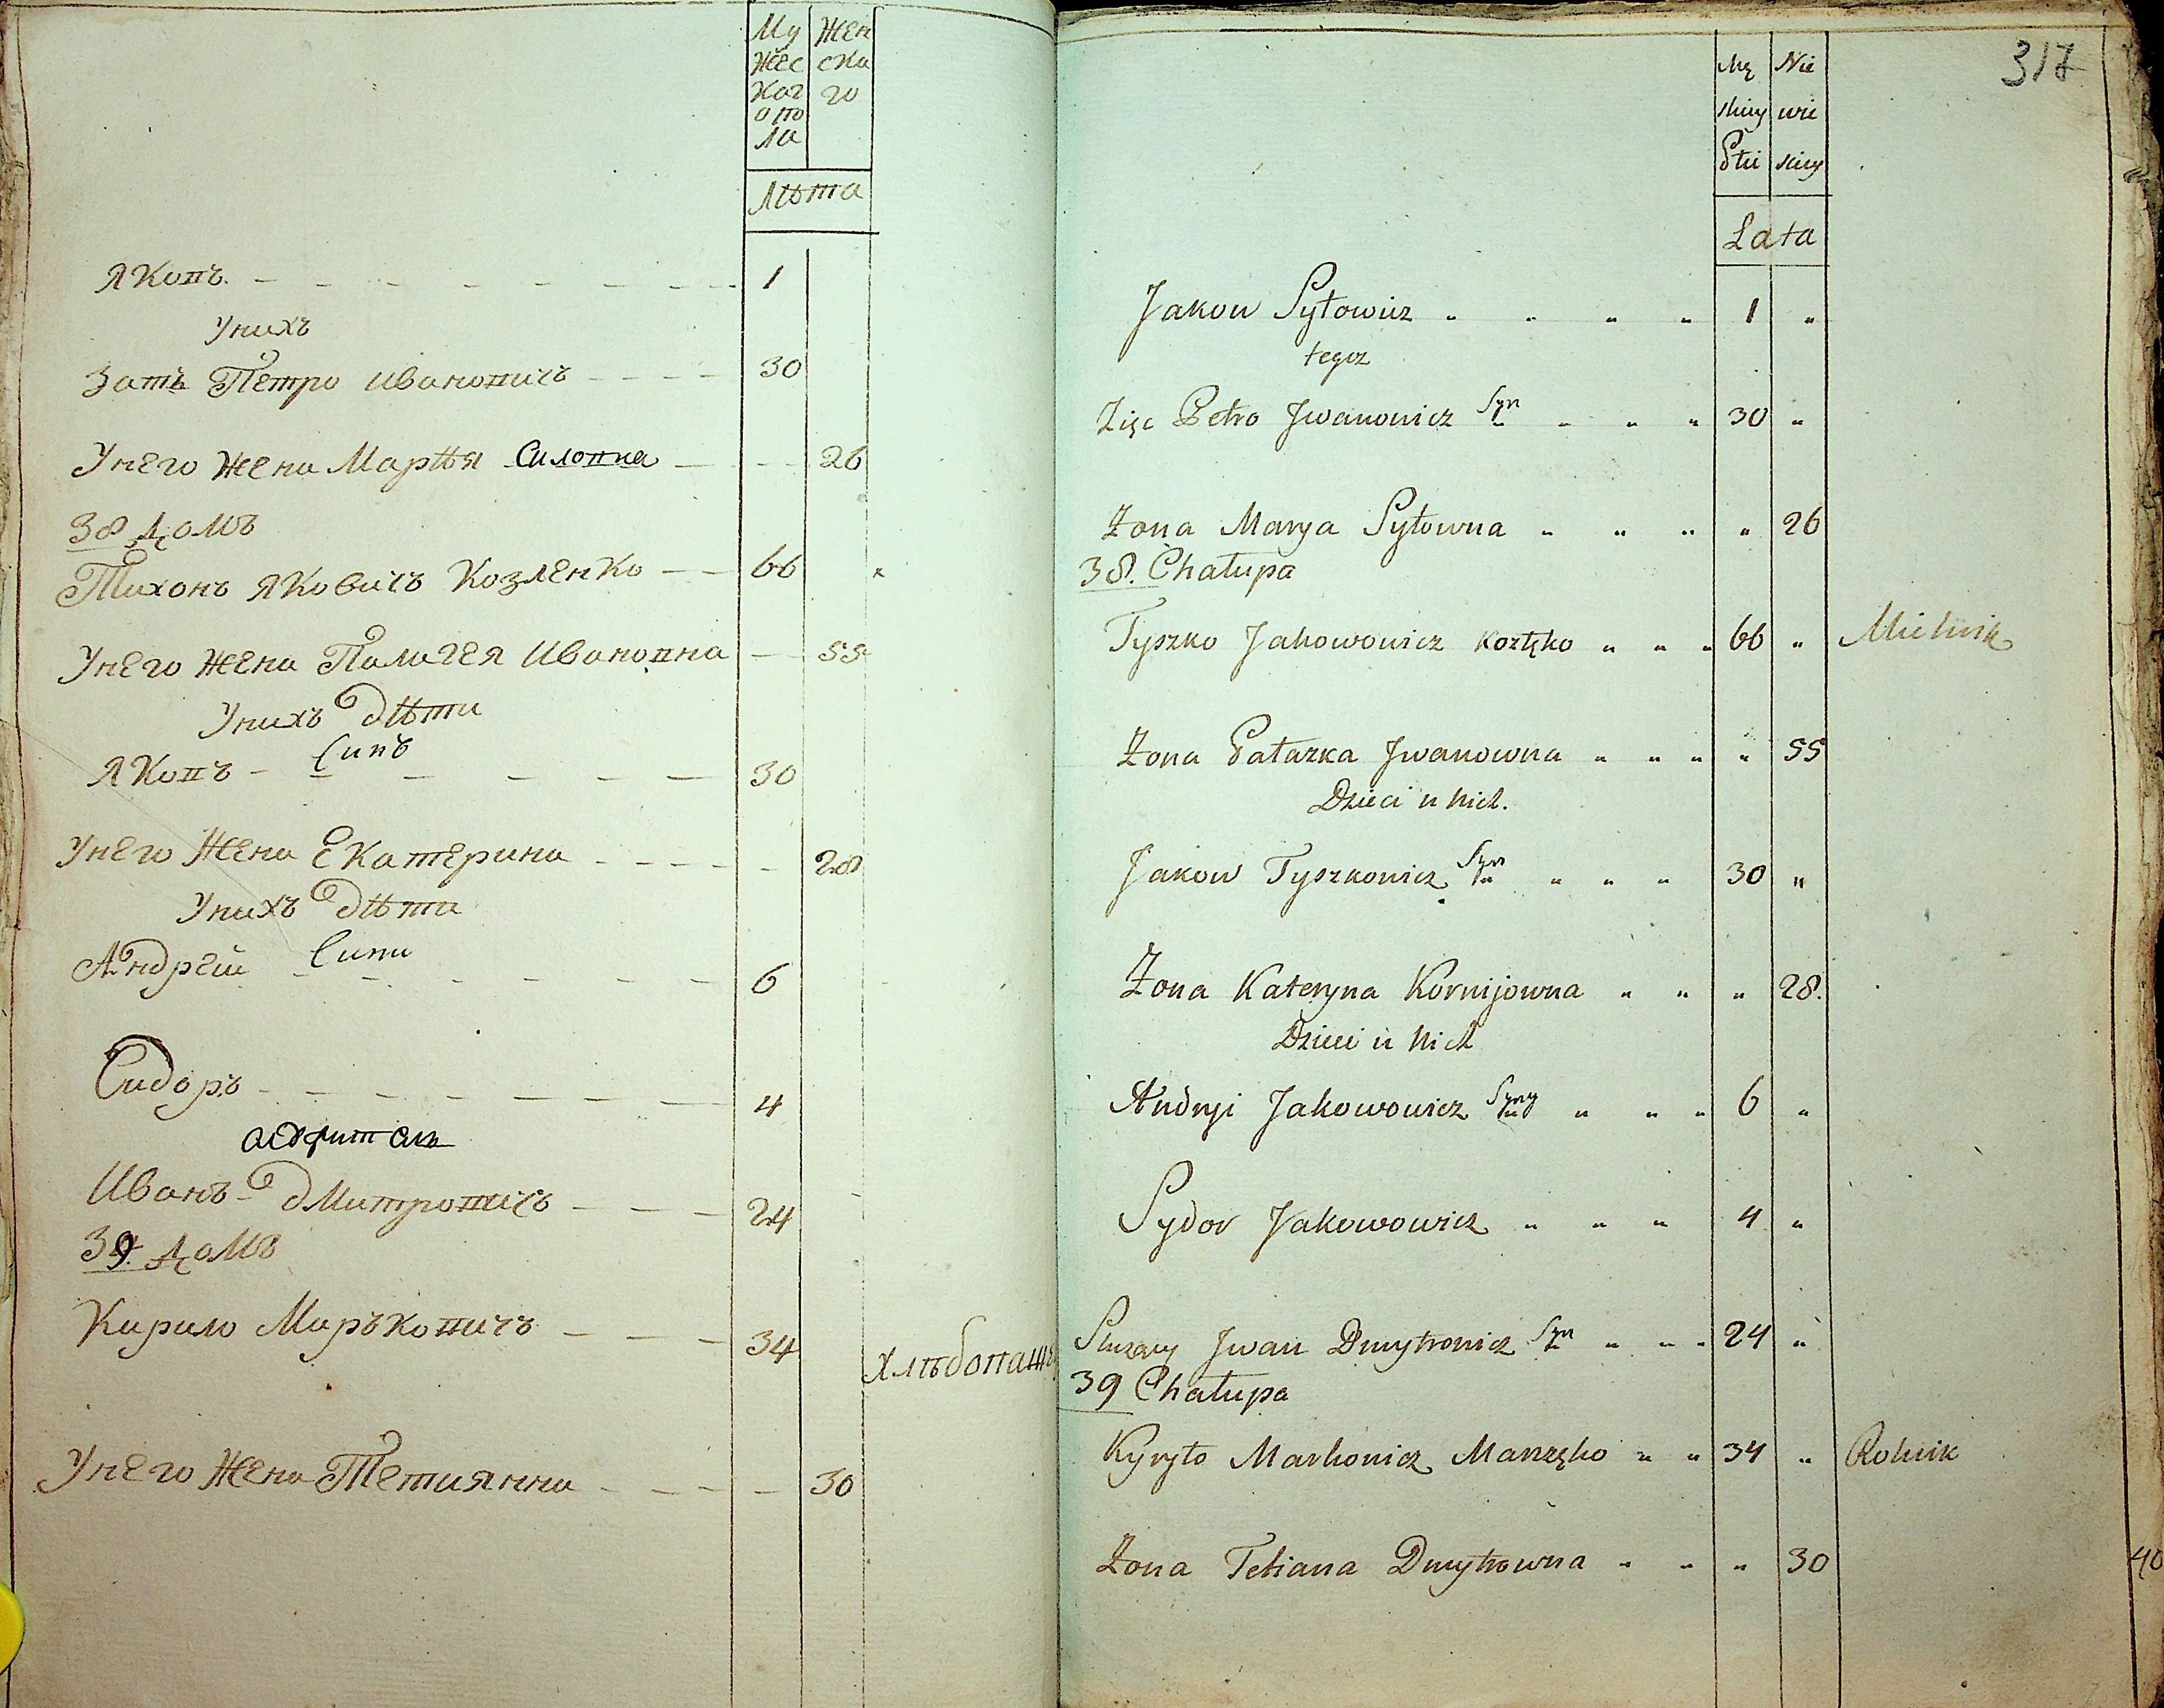 Му
жес
ког
о по
ла
Жен
ска
го
Лѣта
Яковъ 1
У нихъ
Зать Петро Ивановичъ 30
У него жена Марѣя Силовна 26
38 Домъ
Тихонъ Яковичъ Козленко 66 x
У него жена Палагея Ивановна 55
У нихъ дѣти
Яковъ Синъ 30
У него жена Екатерина 28
У нихъ дѣти
Андрей Сини 6
Сидоръ 4
Иванъ Дмитровичъ 24
39. Домъ
Кирило Маръковичъ 34 Хлѣбопаш
У него жена Тетиянна 30
317
Mę
skiey
Płci
Nie
wie
skiey
Lata
Jakow Sylowicz " " " " 1 "
tegoz
Zięc Petro Jwanowicz Syn " " " " 30 "
Żona Marya Syłowna " " " " 26
38. Chałupa
Tyszko Jakowowicz Kozłęko " " " 66 " Mielnik
Żona Pałazka Jwanowna " " " " 55
Dzieci u nich.
Jakow Tyszkowicz Syn " " " " 30 "
Żona Kateryna Kornijowna " " " 28.
Dzieci u nich
Andryi Jakowowicz Syny " " " " 6 "
Sydor Jakowowicz " " " 4 "
Służący Jwan Dmytrowicz Syn " " " " 24 "
39 Chałupa
Kyryło Markowicz Marzęko " " 34 " Rolnik
Żona Tetiana Dmytrowna " " " 30
40